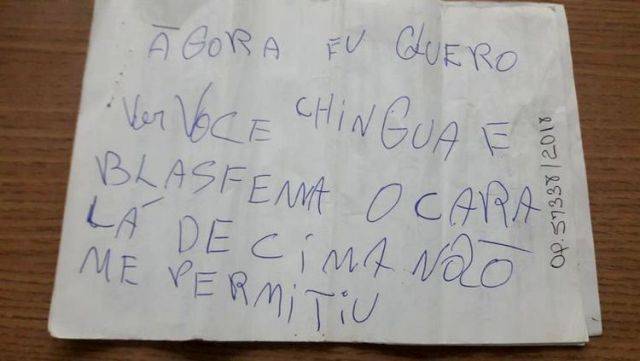 AGORA EU QUERO
Ver VOCE CHINGUA E
BLASFEMA O CARA
LÁ DE CIMA NÃO
ME PERMITIU
Op. 57338/2018